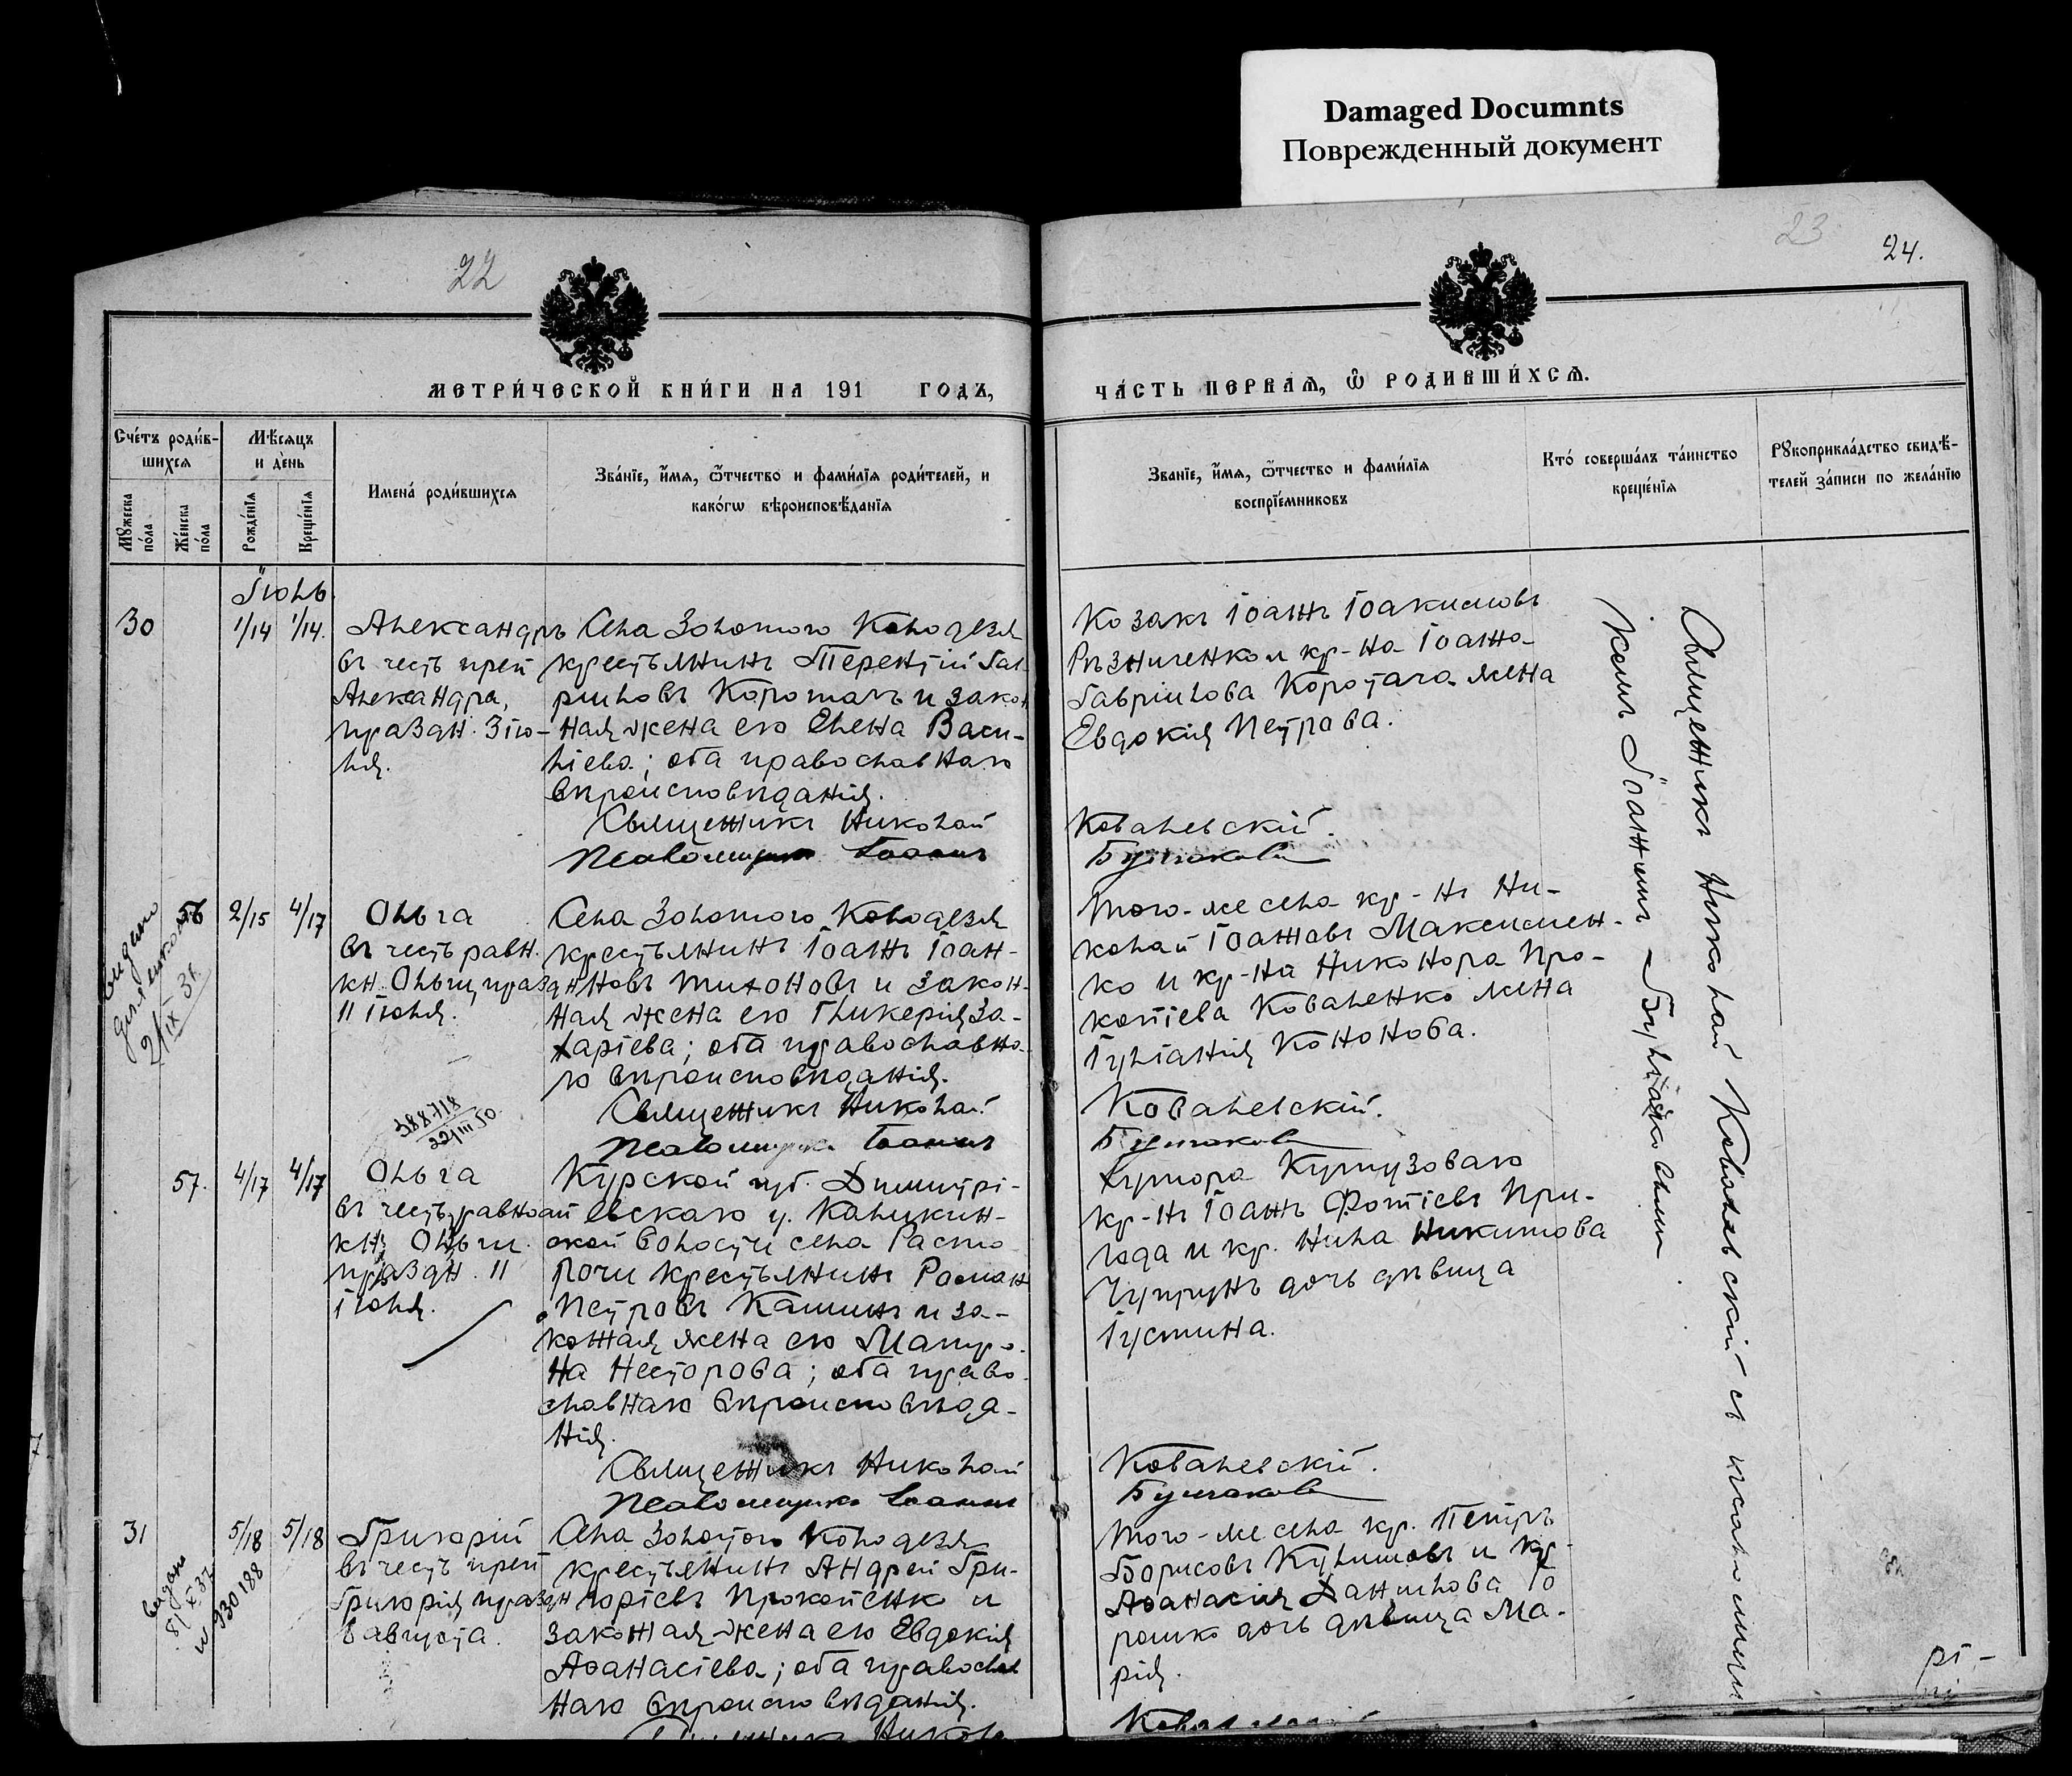 Damaged Documnts
Поврежденный документ
22
23
24.
МЕТРИ́ЧЕСКОЙ КНИ́ГИ НА 191 ГОДЪ,
ЧА́СТЬ ПЕРВАѦ, Ѿ РОДИВШИ́ХСѦ.
Сче́тъ роди́в-
шихся
Мѣ́сяцъ
и де́нь
Имена́ роди́вшихся
Зва́нїе, и҆́мя, ѻ҆́тчество и фами́лїя роди́телей, и
како́гѡ вѣроисповѣ́данїя
Мꙋ́жеска
по́ла
Же́нска
по́ла
Рожде́нїя
Креще́нїя
Зва́нїе, и҆́мя, ѻ҆́тчество и фами́лїя
воспрїе́мниковъ
Кто́ соверша́лъ та́инство
креще́нїя
Рꙋкоприкла́дство свидѣ́-
телей за́писи по жела́нїю
Іюль.
30
1/14 1/14.
Александръ
въ честь преп
Александра,
праздн. 3 ію-
ля.
Села Золотого Колодезя
крестьянинъ Терентій Гав
ріиловъ Коротачъ и закон
ная жена его Елена Васи-
ліева; оба православнаго
вѣроисповѣданія.
Священникъ Николай
Псаломщикъ Іоаннъ
Козакъ Іоаннъ Іоакимовъ
Рѣзниченко и кр-на Іоанна
Гавріилова Коротача жена
Евдокія Петрова.
Ковалевскій.
56
2/15 4/17
Ольга
въ честь равн.
кн. Ольги, празд
11 іюля.
Села Золотого Колодезя
крестьянинъ Іоаннъ Іоан-
новъ Тихоновъ и закон-
ная жена его Гликерія За-
харіева; оба православна-
го вѣроисповѣданія.
Священникъ Николай
Псаломщикъ Іоаннъ
Того-же села кр-нъ Ни-
колай Іоанновъ Максимен-
ко и кр-на Никонора Про-
копіева Коваленко жена
Іуліанія Кононова.
Ковалевскій.
выдано
21/IX 37.
388718
22/III 50.
57.
4/17 4/17
Ольга
въ честь равноап
кн. Ольги.
праздн. 11
іюля.
Курской губ. Димитрі-
евскаго у. Капикин-
ской волости села Расто
рочи крестьянинъ Роман
Петровъ Кашинъ и за-
конная жена его Матро-
на Несторова; оба право
славнаго вѣроисповѣда-
нія.
Священникъ Николай
Псаломщикъ Іоаннъ
Хутора Кутузоваго
кр-нъ Іоаннъ Фотіевъ При-
года и кр. Нила Никитова
Чупрунъ дочь дѣвица
Іустина.
Ковалевскій.
31
5/18 5/18
Григорій
въ честь преп
Григорія празд
8 августа.
Села Золотого Колодезя
крестьянинъ Андрей Гри-
горіевъ Прокопенко и
законная жена его Евдокія
Аѳанасіева; оба православ
наго вѣроисповѣданія.
Того-же села кр. Петръ
Борисовъ Кулишовъ и кр-
Аѳанасія Даниилова То
рошко дочь дѣвица Ма-
рія.
выдано
8/X 37
№ 930188
Священникъ Николай Ковалевскій съ псаломщи
комъ Іоанномъ Бульдяковымъ.